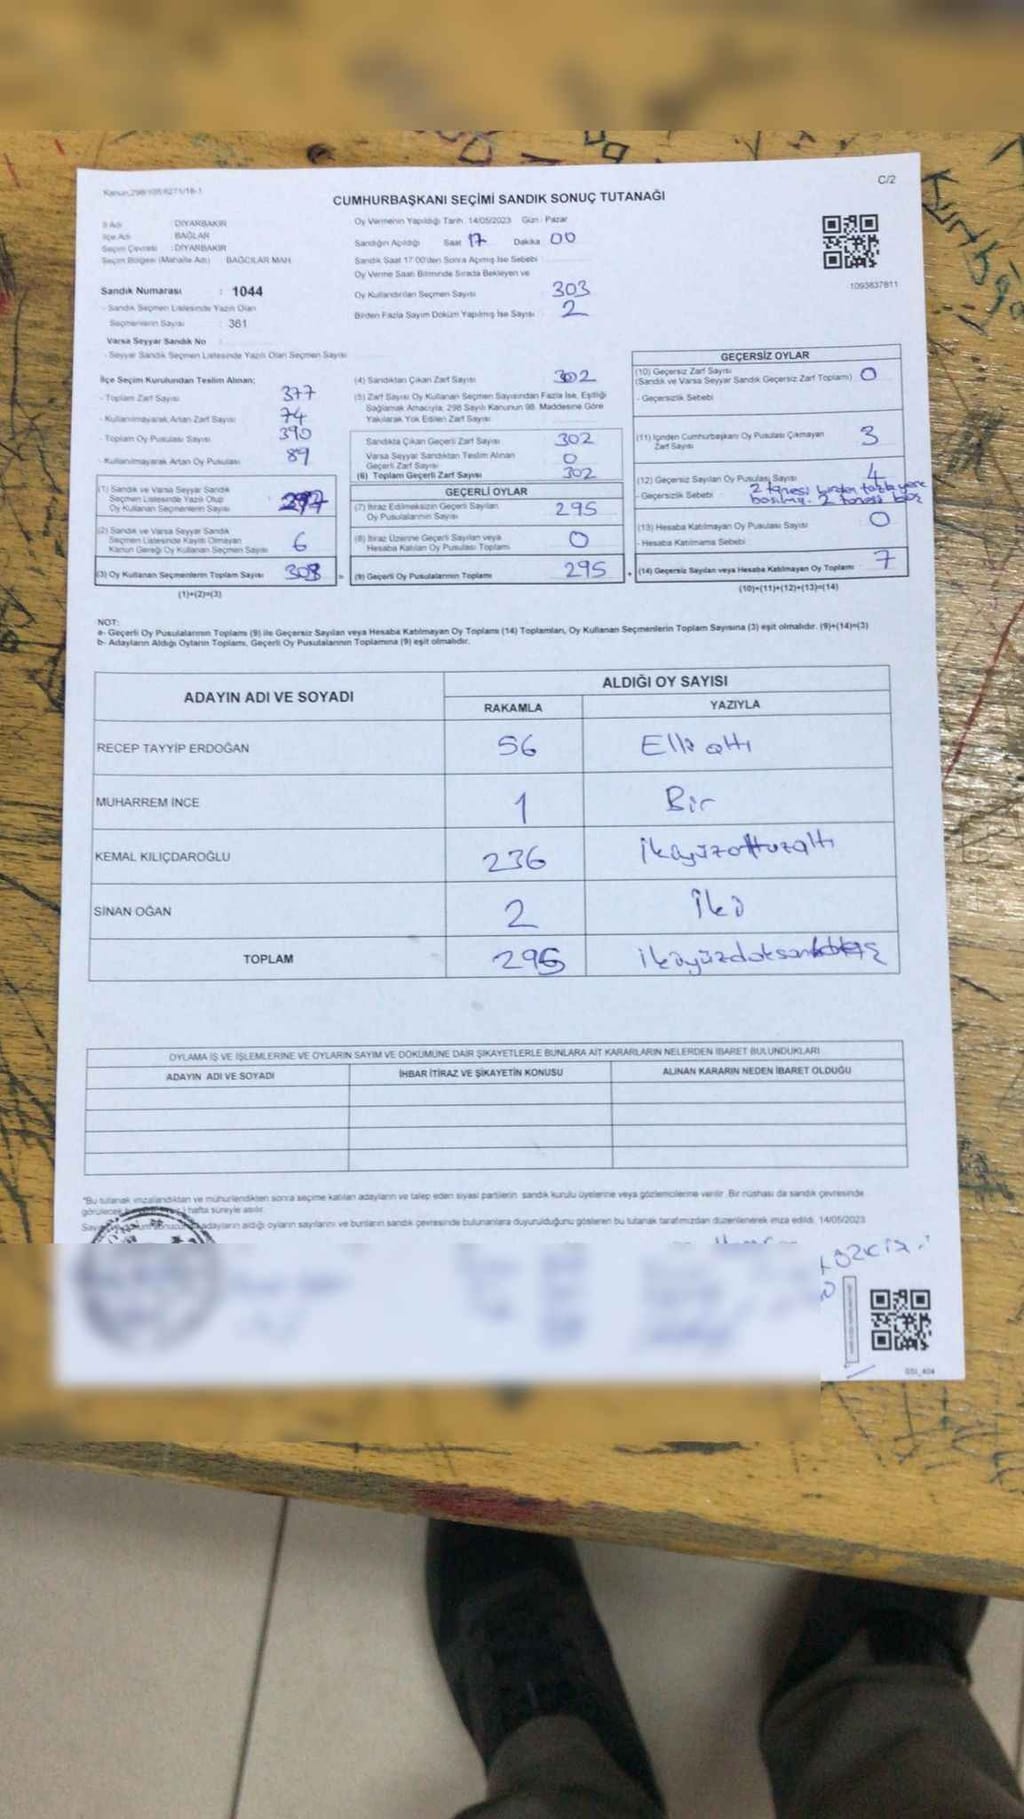 C/2
CUMHURBAŞKANI SEÇİMİ SANDIK SONUÇ TUTANAĞI
İl Adı : DİYARBAKIR
İlçe Adı : BAĞLAR
Seçim Çevresi : DİYARBAKIR
Seçim Bölgesi (Mahalle Adı) : BAĞCILAR MAH.
Oy Vermenin Yapıldığı Tarih :14/05/2023 Gün : Pazar
Sandığın Açıldığı Saat 17 Dakika 00
Sandık Saat 17:00'den Sonra Açılmış İse Sebebi
Oy Verme Saati Bitiminde Sırada Bekleyen ve
Oy Kullandırılan Seçmen Sayısı 303
Birden Fazla Sayım Döküm Yapılmış İse Sayısı 2
1093837811
Sandık Numarası : 1044
- Sandık Seçmen Listesinde Yazılı Olan
Seçmenlerin Sayısı : 361
Varsa Seyyar Sandık No
- Seyyar Sandık Seçmen Listesinde Yazılı Olan Seçmen Sayısı
İlçe Seçim Kurulundan Teslim Alınan;
- Toplam Zarf Sayısı 377
- Kullanılmayarak Artan Zarf Sayısı 74
- Toplam Oy Pusulası Sayısı 390
- Kullanılmayarak Artan Oy Pusulası 89
(1) Sandık ve Varsa Seyyar Sandık
Seçmen Listesinde Yazılı Olup
Oy Kullanan Seçmenlerin Sayısı 297
(2) Sandık ve Varsa Seyyar Sandık
Seçmen Listesinde Kayıtlı Olmayan
Kanun Gereği Oy Kullanan Seçmen Sayısı 6
(3) Oy Kullanan Seçmenlerin Toplam Sayısı
(1)+(2)=(3)
(4) Sandıktan Çıkan Zarf Sayısı 302
(5) Zarf Sayısı Oy Kullanan Seçmen Sayısından Fazla İse, Eşitliği
Sağlamak Amacıyla, 298 Sayılı Kanunun 98. Maddesine Göre
Yakılarak Yok Edilen Zarf Sayısı
Sandıkta Çıkan Geçerli Zarf Sayısı 302
Varsa Seyyar Sandıktan Teslim Alınan
Geçerli Zarf Sayısı 0
(6) Toplam Geçerli Zarf Sayısı 302
GEÇERLİ OYLAR
(7) İtiraz Edilmeksizin Geçerli Sayılan
Oy Pusulalarının Sayısı 295
(8) İtiraz Üzerine Geçerli Sayılan veya
Hesaba Katılan Oy Pusulası Toplamı 0
= (9) Geçerli Oy Pusulalarının Toplamı 295
GEÇERSİZ OYLAR
(10) Geçersiz Zarf Sayısı
(Sandık ve Varsa Seyyar Sandık Geçersiz Zarf Toplamı) 0
- Geçersizlik Sebebi
(11) İçinden Cumhurbaşkanı Oy Pusulası Çıkmayan
Zarf Sayısı 3
(12) Geçersiz Sayılan Oy Pusulası Sayısı 4
- Geçersizlik Sebebi 2 tanesi birden fazla yere
basılmış. 2 tanesi boş
(13) Hesaba Katılmayan Oy Pusulası Sayısı 0
- Hesaba Katılmama Sebebi
+ (14) Geçersiz Sayılan veya Hesaba Katılmayan Oy Toplamı 7
(10)+(11)+(12)+(13)=(14)
NOT:
a- Geçerli Oy Pusulalarının Toplamı (9) ile Geçersiz Sayılan veya Hesaba Katılmayan Oy Toplamı (14) Toplamları, Oy Kullanan Seçmenlerin Toplam Sayısına (3) eşit olmalıdır. (9)+(14)=(3)
b- Adayların Aldığı Oyların Toplamı, Geçerli Oy Pusulalarının Toplamına (9) eşit olmalıdır.
ADAYIN ADI VE SOYADI
ALDIĞI OY SAYISI
RAKAMLA YAZIYLA
RECEP TAYYİP ERDOĞAN 56 Elli altı
MUHARREM İNCE 1 Bir
KEMAL KILIÇDAROĞLU 236 ikiyüzotuzaltı
SİNAN OĞAN 2 iki
TOPLAM 295
OYLAMA İŞ VE İŞLEMLERİNE VE OYLARIN SAYIM VE DÖKÜMÜNE DAİR ŞİKAYETLERLE BUNLARA AİT KARARLARIN NELERDEN İBARET BULUNDUKLARI
ADAYIN ADI VE SOYADI İHBAR İTİRAZ VE ŞİKAYETİN KONUSU ALINAN KARARIN NEDEN İBARET OLDUĞU
*Bu tutanak imzalandıktan ve mühürlendikten sonra seçime katılan adayların ve talep eden siyasi partilerin sandık kurulu üyelerine veya gözlemcilerine verilir. Bir nüshası da sandık çevresinde
görülecek hafta süreyle asılır.
adayların aldığı oyların sayılarını ve bunların sandık çevresinde bulunanlara duyurulduğunu gösteren bu tutanak tarafımızdan düzenlenerek imza edildi. 14/05/2023